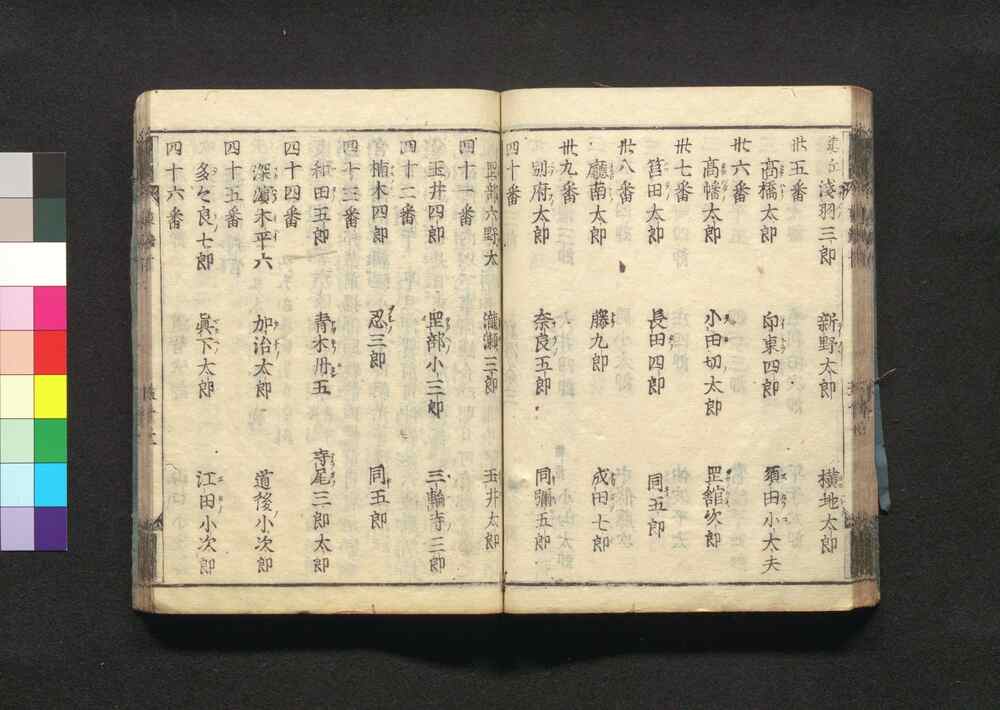 淺羽三郎 新野太郎 橫地太郎
卅五番
髙橋太郎 印東四郎 須田小大夫
卅六番
髙幡太郎 小田切太郎 罡舘次郎
卅七番
筥田太郎 長田四郎 同五郎
卅八番
廳南太郎 藤九郎 成田七郎
卅九番
别府太郎 奈良五郎 同彌五郎
四十番
罡部六野太 瀧瀬三郎 玉井太郎
四十一番
玉井四郎 罡部小三郎 三輪寺三郎
四十二番
楠木四郎 忍三郎 同五郎
四十三番
和田五郎 青木丹五 寺尾三郎太郎
四十四番
深濵木平六 加治太郎 道後小次郎
四十五番
多々良七郎 眞下太郎 江田小次郎
四十六番